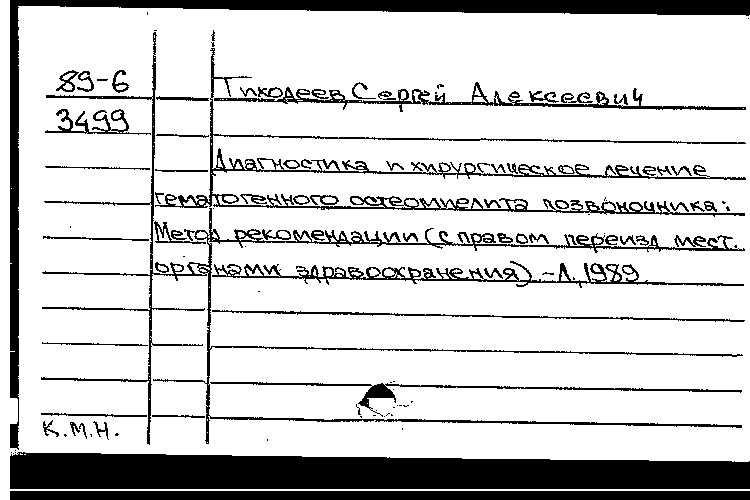 89-6 Тиходеев, Сергей Алексеевич
3499
Диагностика и хирургическое лечение
гематогенного остеомиелита позвоночника:
Метод рекомендации (с правом переизд. мест.
органами здравоохранения). -Л., 1989
К.М.Н.